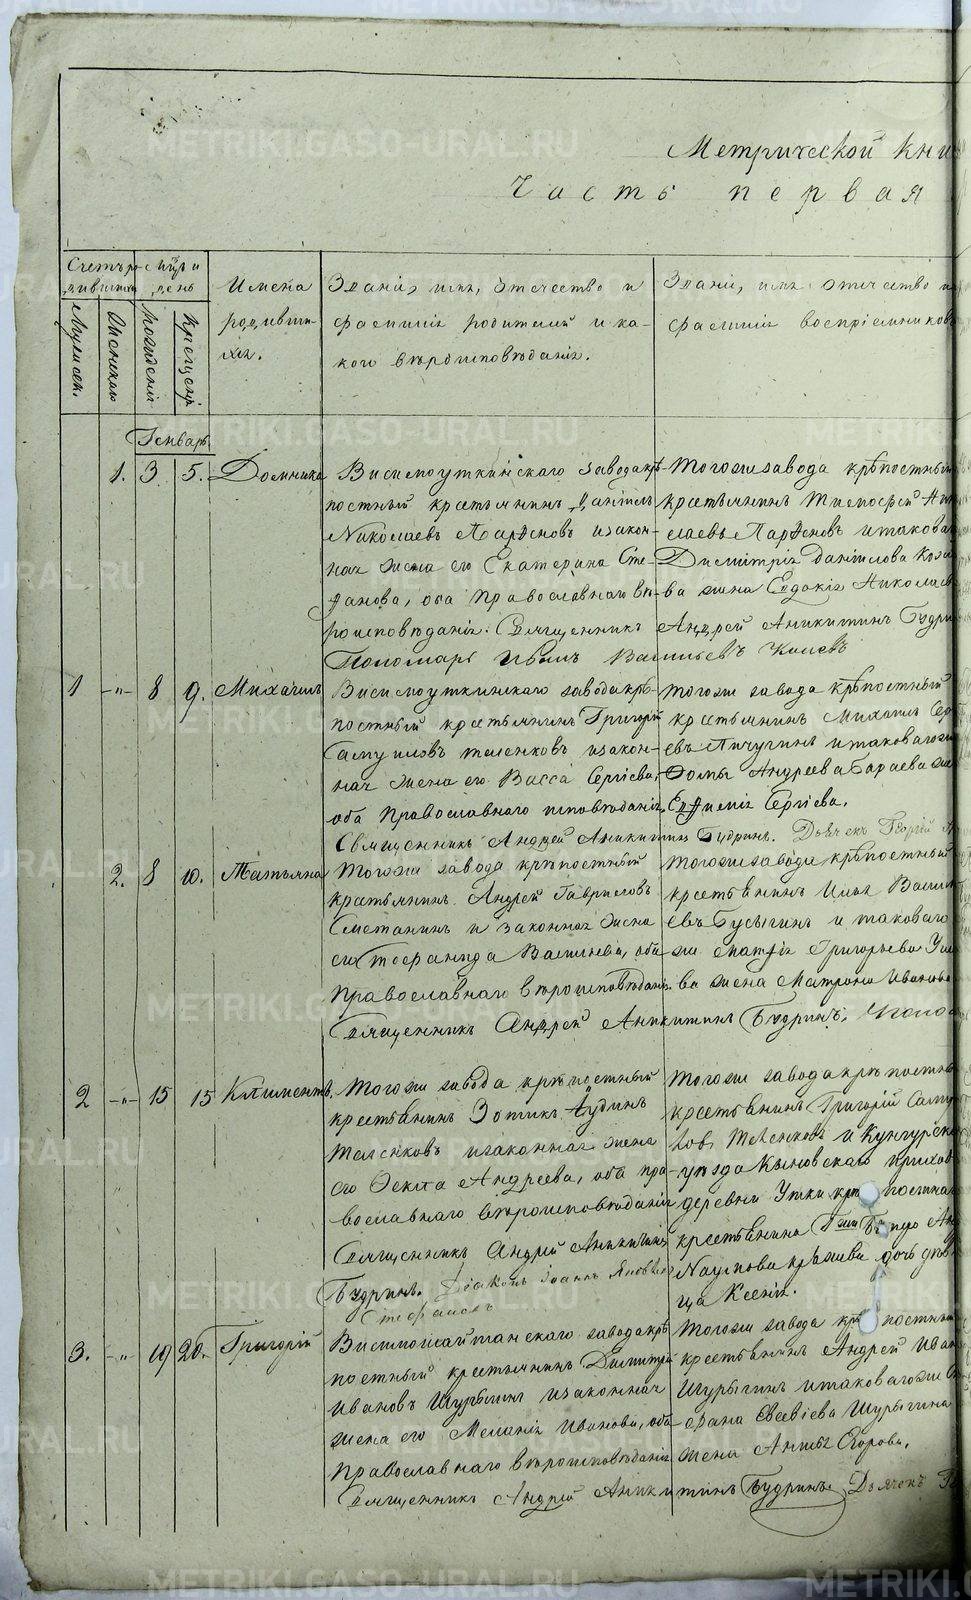 Метрической кни
Часть первая
Счетъ ро-
дившихся
Мужеск.
Женскаго
Мѣсяцъ и
день
Рожденія
Крещенія
Имена
родивши-
хся.
Званіе, имя, отечество и
фамилія родителей и ка-
кого вѣроисповѣданія.
Званіе, имя отечество и
фамилія воспріемниковъ
Генварь
1. 3 5. Домника
Висимоуткинскаго завода крѣ-
постный крестьянинъ Даніилъ
Николаевъ Парѳеновъ и закон-
ная жена его Екатерина Сте-
фанова, оба Православнаго вѣ-
роисповѣданія. Священникъ Андрей Аникитинъ Будри
Пономарь Иванъ Васильевъ
Тогоже завода крѣпостный
крестьянинъ Тимофей Ни
лаевъ Парѳеновъ и таковаго
Димитрія Данилова
ва жена Евдокія Николаев
1 -"- 8 9. Михаилъ
Висимоуткинскаго завода крѣ-
постный крестьянинъ Григорій
Самуиловъ Теленковъ и закон-
ная жена его Васса Сергіева,
оба Православнаго исповѣданія.
Священникъ Андрей Аникитинъ Будринъ. Дьячекъ Георгій
Тогоже завода крѣпостный
крестьянинъ Михаилъ Сер
евъ Пичугинъ и таковагоже
Ѳомы Андреева Бараева же
Евфимія Сергіева.
2. 8 10. Татьяна
Тогоже завода крѣпостный
крестьянинъ Андрей Гавриловъ
Сметанинъ и законная жена
его Гликерида Васильева, оба
Православнаго вѣроисповѣданія.
Священникъ Андрей Аникитинъ Будринъ. Поно
Тогоже завода крѣпостный
крестьянинъ Илья Василь
евъ Бусыгинъ и таковаго
же Матѳія Григорьева
ва жена Матрона Иванова
2 -"- 15 15 Климентъ.
Тогоже завода крѣпостный
крестьянинъ Зотикъ
Теленковъ и законная жена
его Ѳекла Андреева, оба пра-
вославнаго вѣроисповѣданія
Священникъ Андрей Аникитинъ
Будринъ. Діаконъ Іоаннъ Яковлевъ
Стефановъ
Тогоже завода крѣпостны
крестьянинъ Григорій Саму
ловъ Теленковъ и Кунгурска
уѣзда Кыновскаго прихода
деревни Утки крѣпостнаго
крестьянина
Наумова дочь дѣви
ца Ксенія.
3. -"- 19 20. Григорій
Висимошайтанскаго завода крѣ-
постный крестьянинъ Димитрій
Ивановъ Шурыгинъ и законная
жена его Меланія Иванова, оба
Православнаго вѣроисповѣданія
Священникъ Андрей Аникитинъ Будринъ. Дьячекъ Ге
Тогоже завода крѣпостный
крестьянинъ Андрей Иван
Шурыгинъ и таковагоже
Евсевіева Шурыгина
жена Анна Егорова.